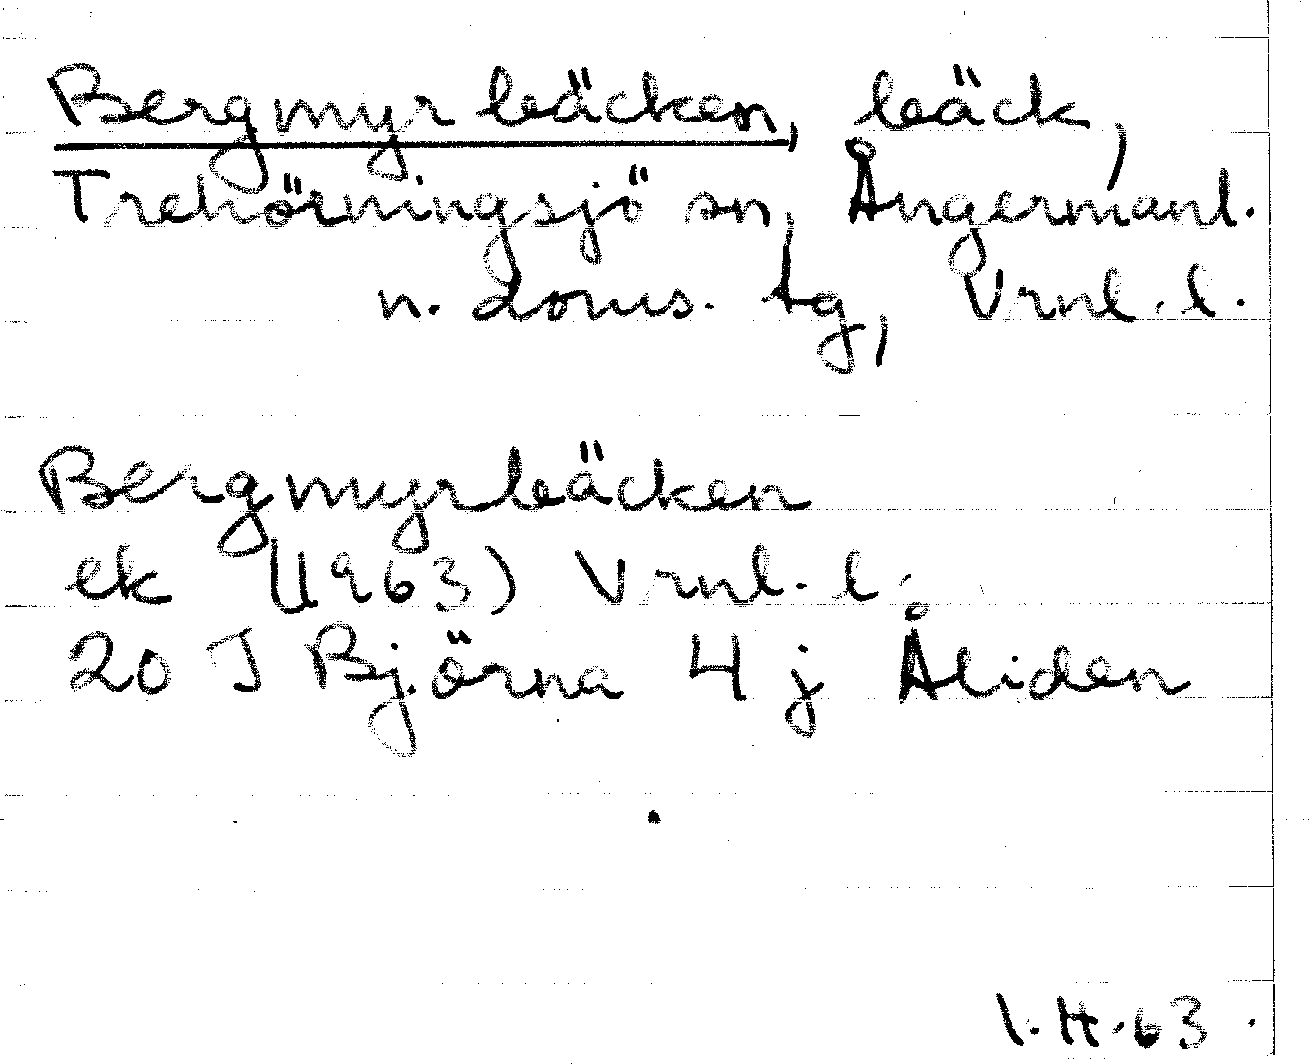 Bergmyrbäcken, bäck,
Trehörningsjö sn, Ångermanl.
n. doms. tg, Vrnl. l.
Bergmyrbäcken
ek (1963) Vrnl. l.
20 J Björna 4 j Åliden
I.H.63.